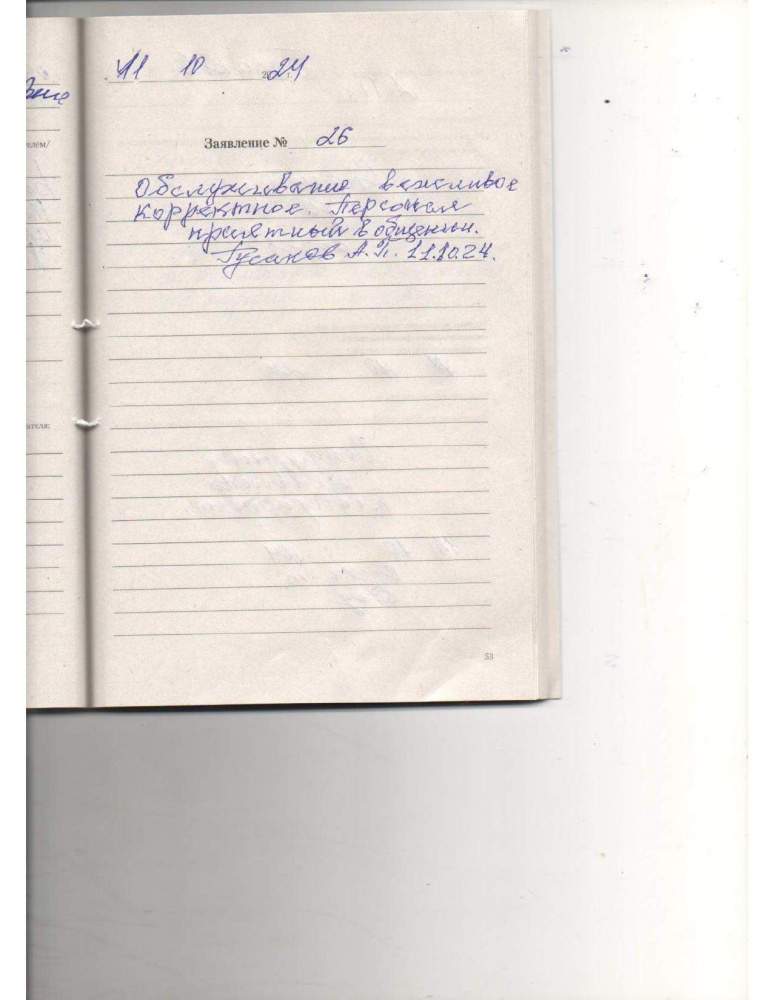 11 10 2024 г.
Заявление № 26
Обслуживание вежливое
корректное. Персонал
приятный в общении.
Гусаков А.П. 11.10.24.
53